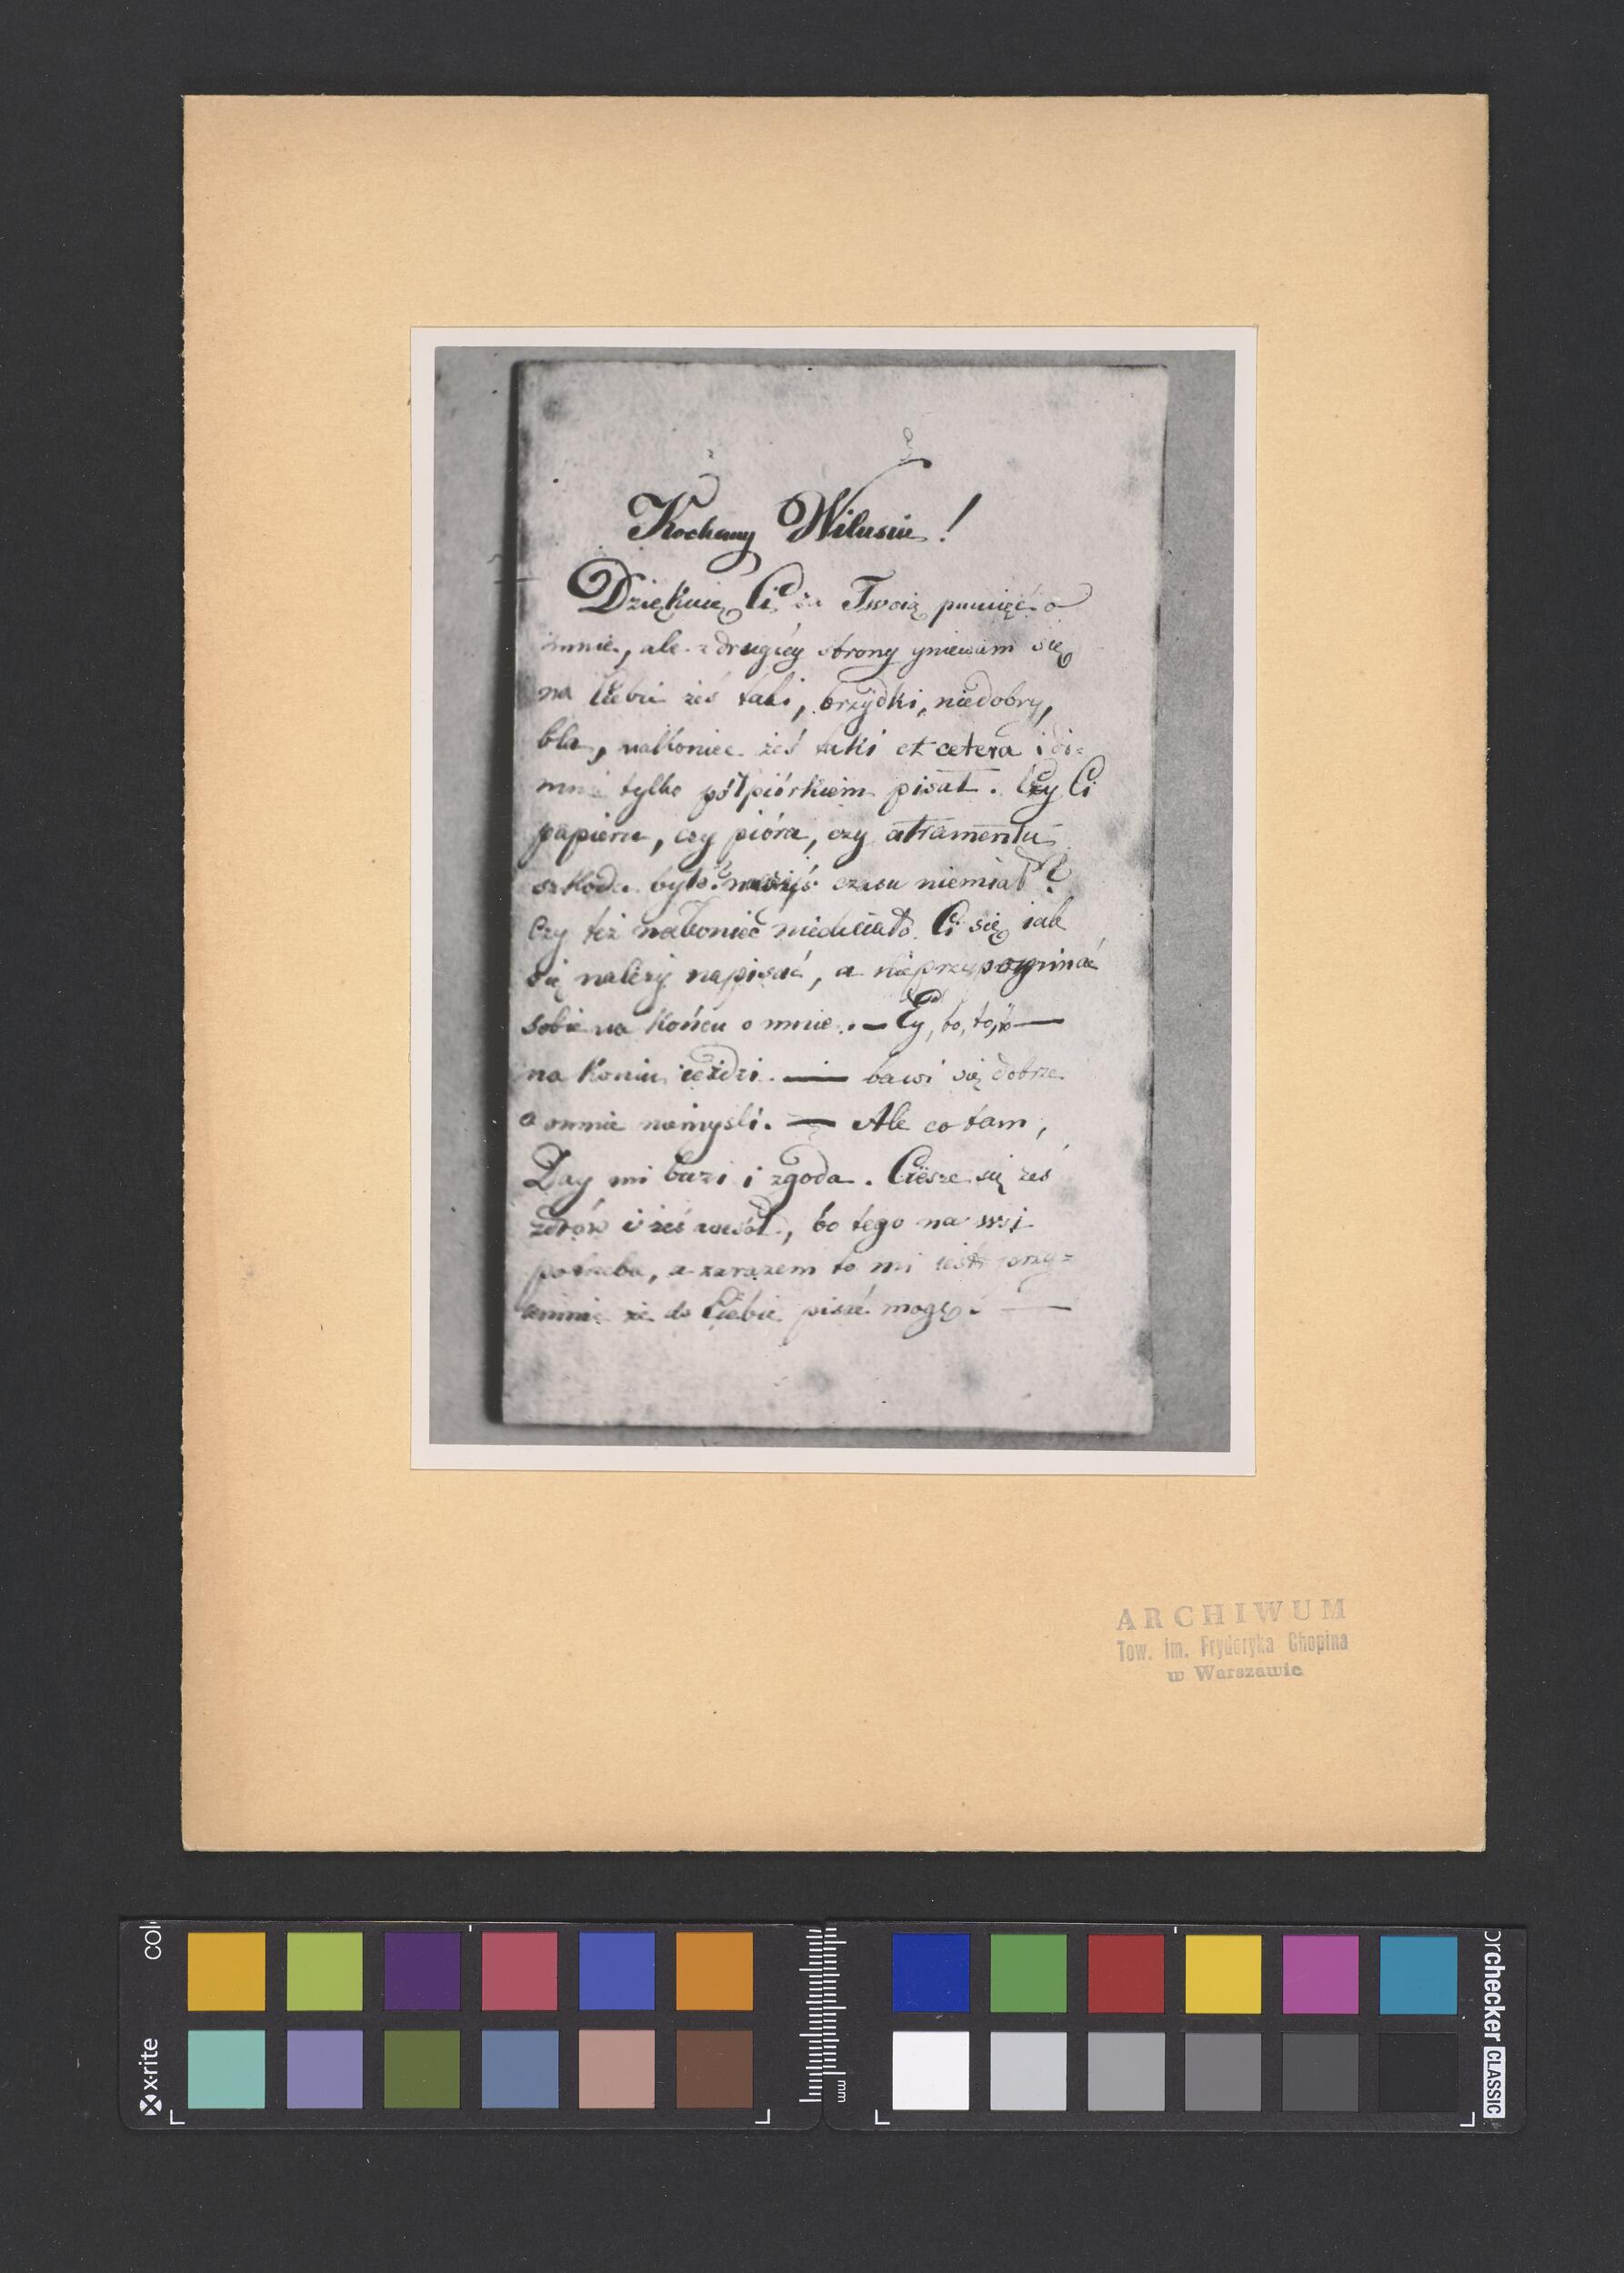 Kochany Wilusiu!
Dziękuię Ci za Twoią pamięć o
mnie, ale z drugiéy strony gniewam się
na Ciebie żeś taki, brzydki, niedobry,
bla, nakoniec żeś taki et cetera i do
mnie tylko półpiórkiem pisał. Czy Ci
papieru, czy pióra, czy atramentu
szkoda było? czasu niemiał?
Czy też nakoniec niechciało Ci się iak
się należy napisać, a nieprzypominać
sobie na końcu o mnie. — Ey, to, to, to —
na koniu ieździ. — bawi się dobrze
o mnie niemyśli. — Ale co tam,
Day mi buzi i zgoda. Ciesze się żeś
zdrów i żeś wesół, bo tego na wsi
potrzeba, a zarazem to mi iest przy=
iemnie że do Ciebie pisać mogę. —
ARCHIWUM
Tow. im. Fryderyka Chopina
w Warszawie
x-rite
colorchecker CLASSIC
mm